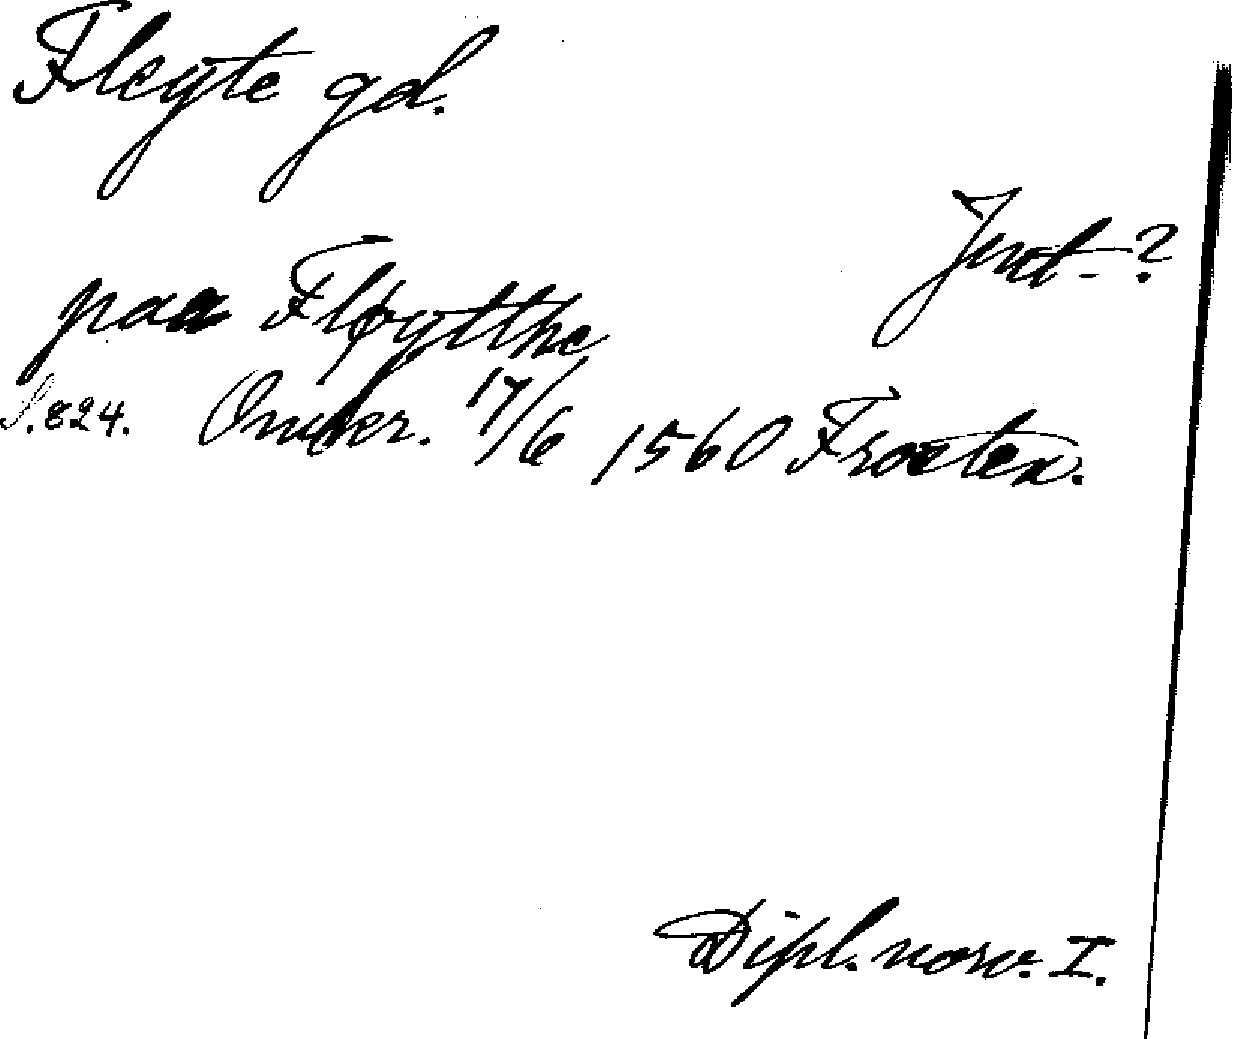 Fleyte gd.
Jmt-?
paa Fløytthe
S. 824. Omkr. 17/6 1560 Frosten.
Dipl. norv. I.